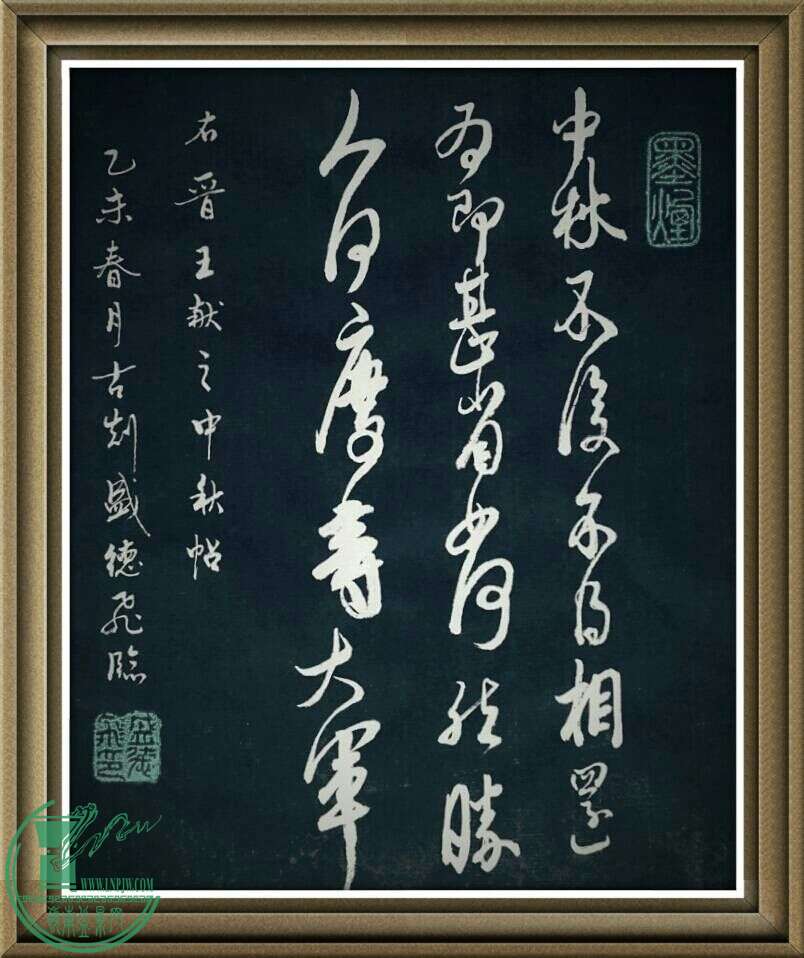 中秋不復不得相還
為即甚省如何然勝
人何慶等大軍
右晋王献之中秋帖
乙未春月古剡盛德飛臨
盛德飛印
WWW.LNPJW.COM